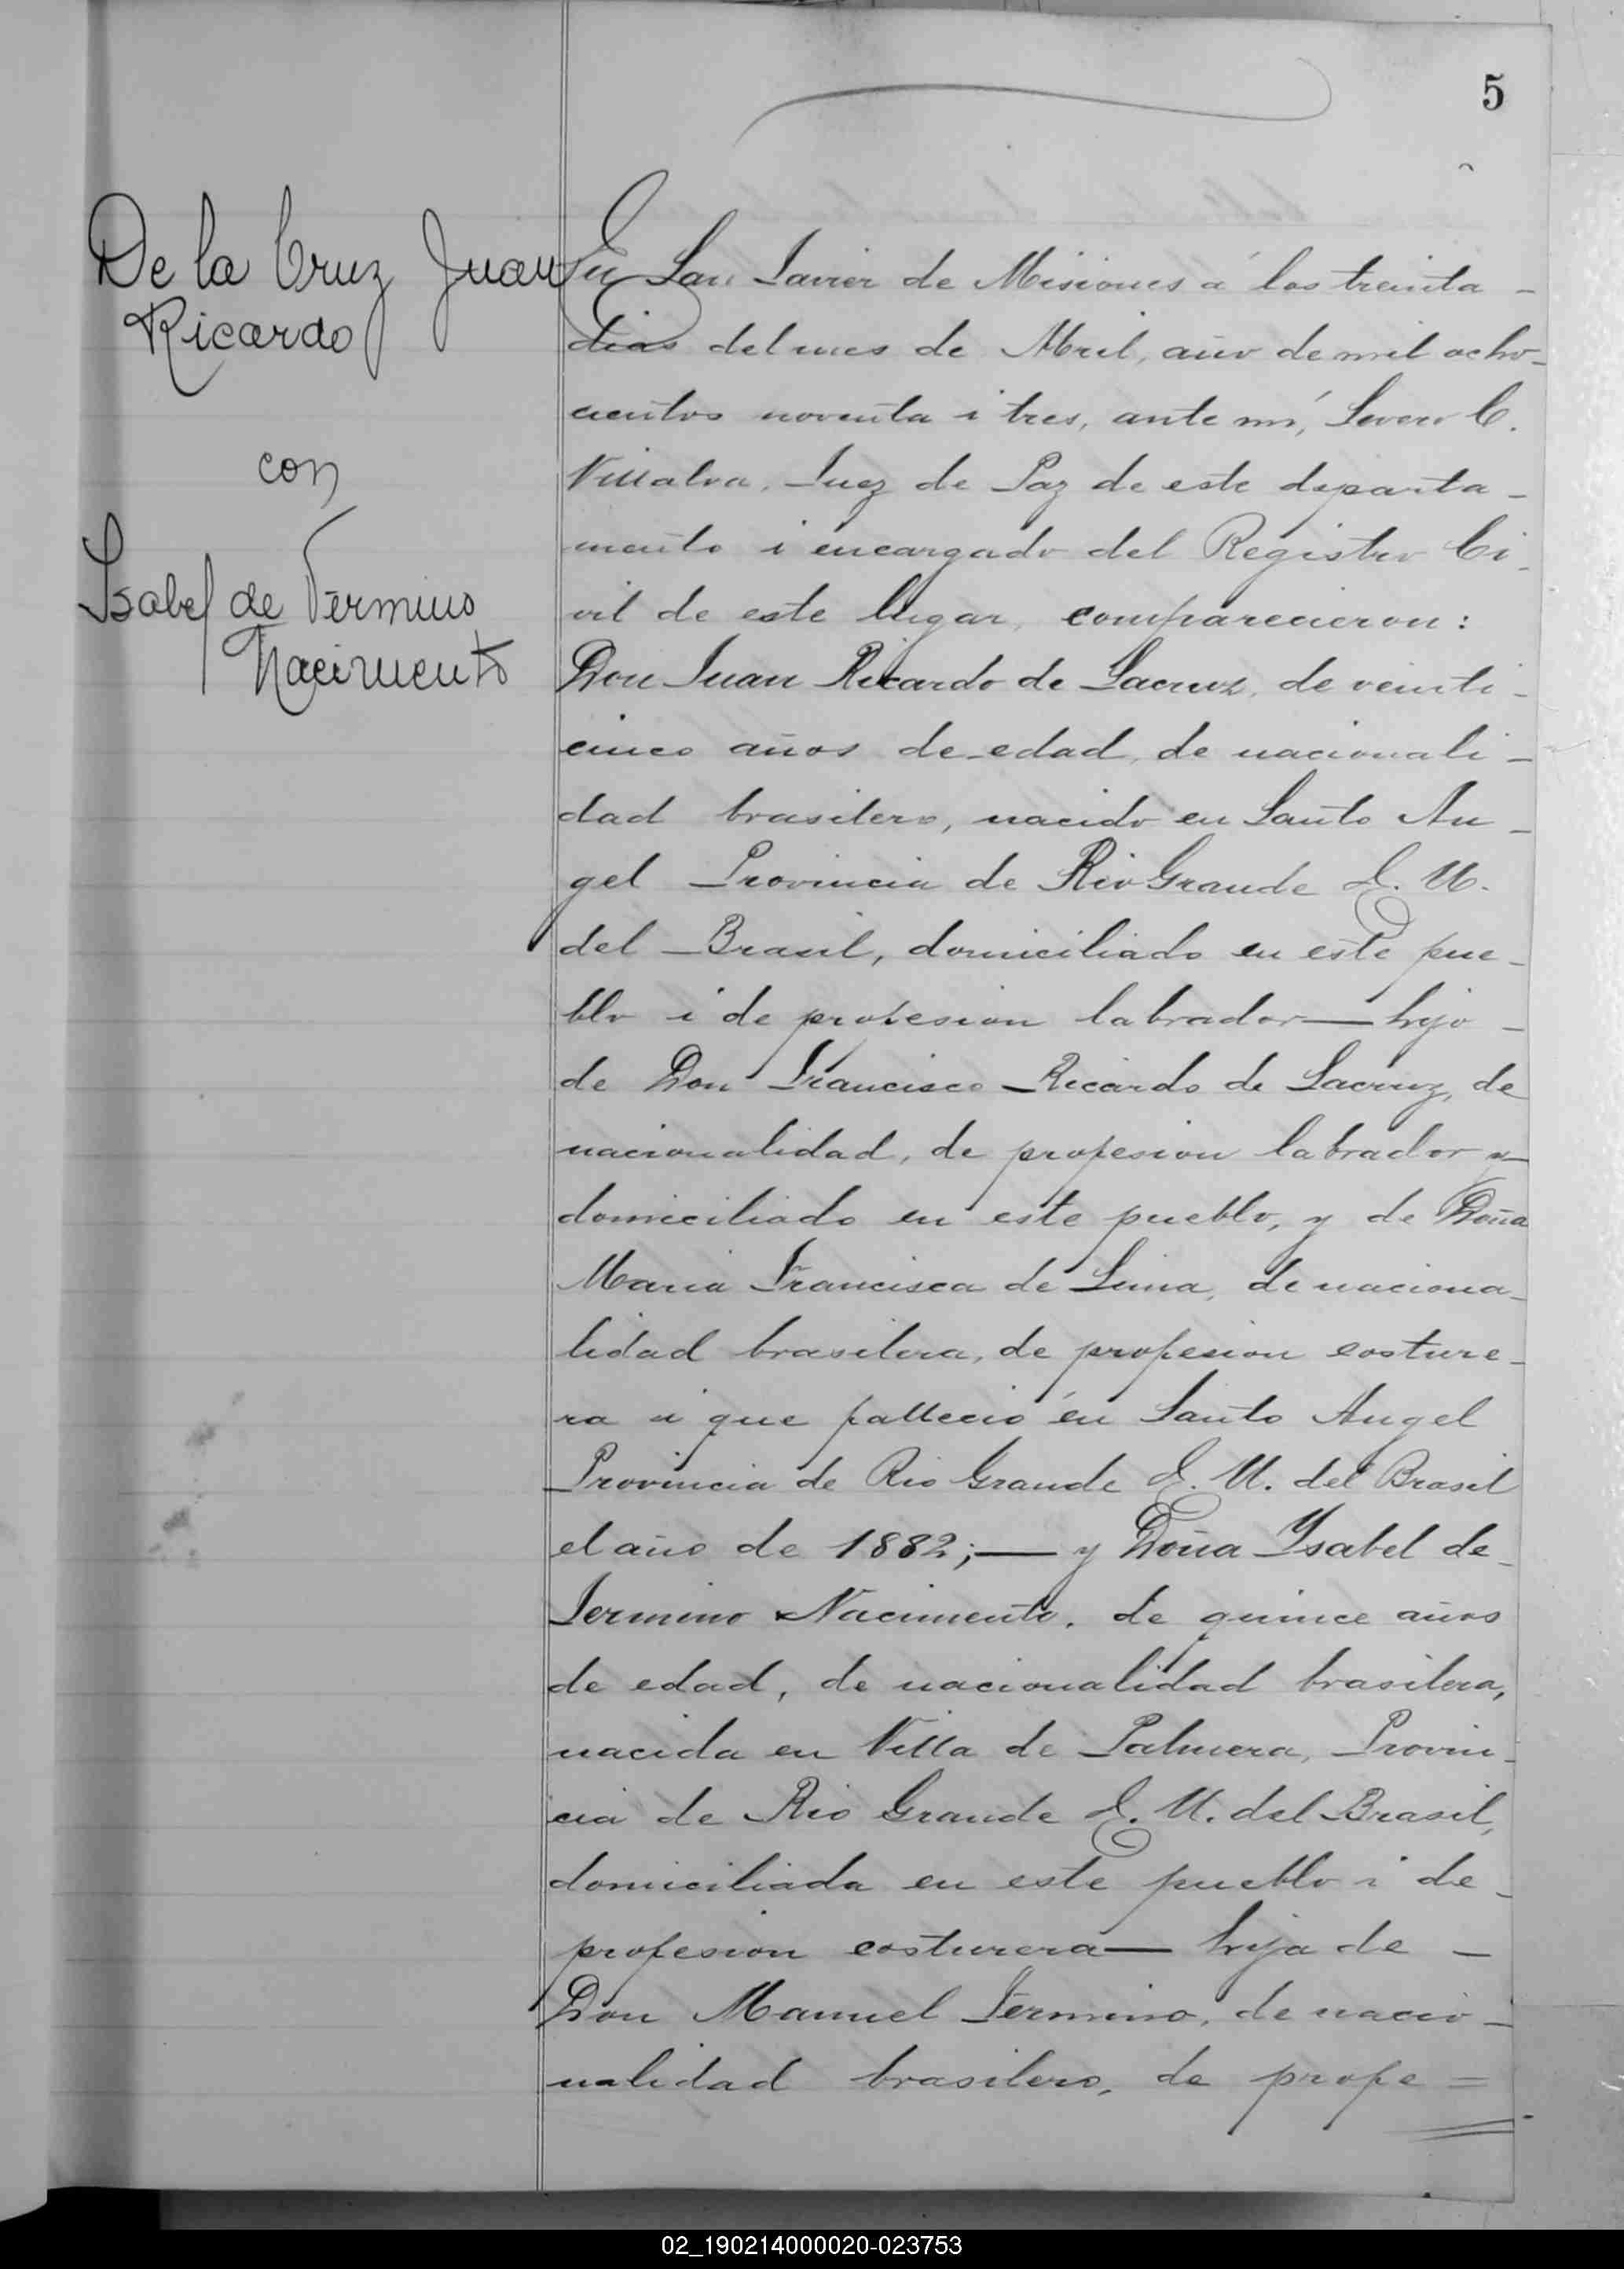 5
De la Cruz Juan
Ricardo
con
Isabel de Fermino
Nacimento
En San Javier de Misiones á los treinta -
dias del mes de Abril, año de mil ocho-
cientos noventa i tres, ante mí, Severo C.
Villalva, Juez de Paz de este departa-
mento i encargado del Registro Ci-
vil de este lugar, comparecieron:
Don Juan Ricardo de Lacruz, de veinti-
cinco años de edad, de nacionali-
dad brasilero, nacido en Santo An-
gel Provincia de Rio Grande E. U.
del Brasil, domiciliado en este pue-
blo i de profesion labrador — hijo -
de Don Francisco Ricardo de Lacruz, de
nacionalidad, de profesion labrador y
domiciliado en este pueblo, y de Doña
Maria Francisca de Lima, de naciona-
lidad brasilera, de profesion costure-
ra i que falleció en Santo Angel
Provincia de Rio Grande E. U. del Brasil
el año de 1882; — y Doña Ysabel de
Fermino Nacimento, de quince años
de edad, de nacionalidad brasilera,
nacida en Villa de Palmera, Provin-
cia de Rio Grande E. U. del Brasil,
domiciliada en este pueblo i de -
profesion costurera — hija de -
Don Manuel Fermino, de nacio-
nalidad brasilero, de profe =
02_190214000020-023753